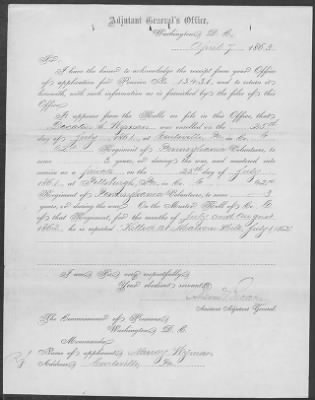 Adjutant General's Office,
Washington, D. C.
April 7, 1863.
Sir:
I have the honor to acknowledge the receipt from your Office
of application for Pension No. 13434, and to return it
herewith, with such information as is furnished by the files of this
Office.
It appears from the Rolls on file in this Office, that
Wyman was enrolled on the 25th
day of July, 1861, at Pa. in Co. G
62nd Regiment of Pennsylvania Volunteers, to serve
3 years, or during the war, and mustered into
service as a Private on the 25th day of July
1861, at Pittsburgh, Pa. in Co. G 62nd
Regiment of Pennsylvania Volunteers, to serve 3
years, or during the war. On the Muster Roll of Co. G
of that Regiment, for the months of July and August
1862, he is reported Killed at Malvern Hill July 1 1862
I am, Sir, very respectfully,
Your obedient servant,
Assistant Adjutant General.
The Commissioner of Pensions
Washington, D. C.
Memoranda:
Name of applicant, Nancy Wyman
Address, Pa.